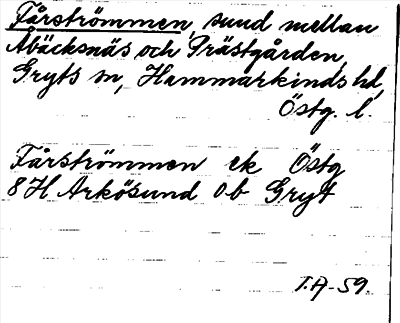 Fårströmmen, sund mellan
Åbäcksnäs och Prästgården,
Gryts sn, Hammarkinds hd,
Östg. l.
Fårströmmen ek Östg
8H Arkösund 0b Gryt
I.A-59.